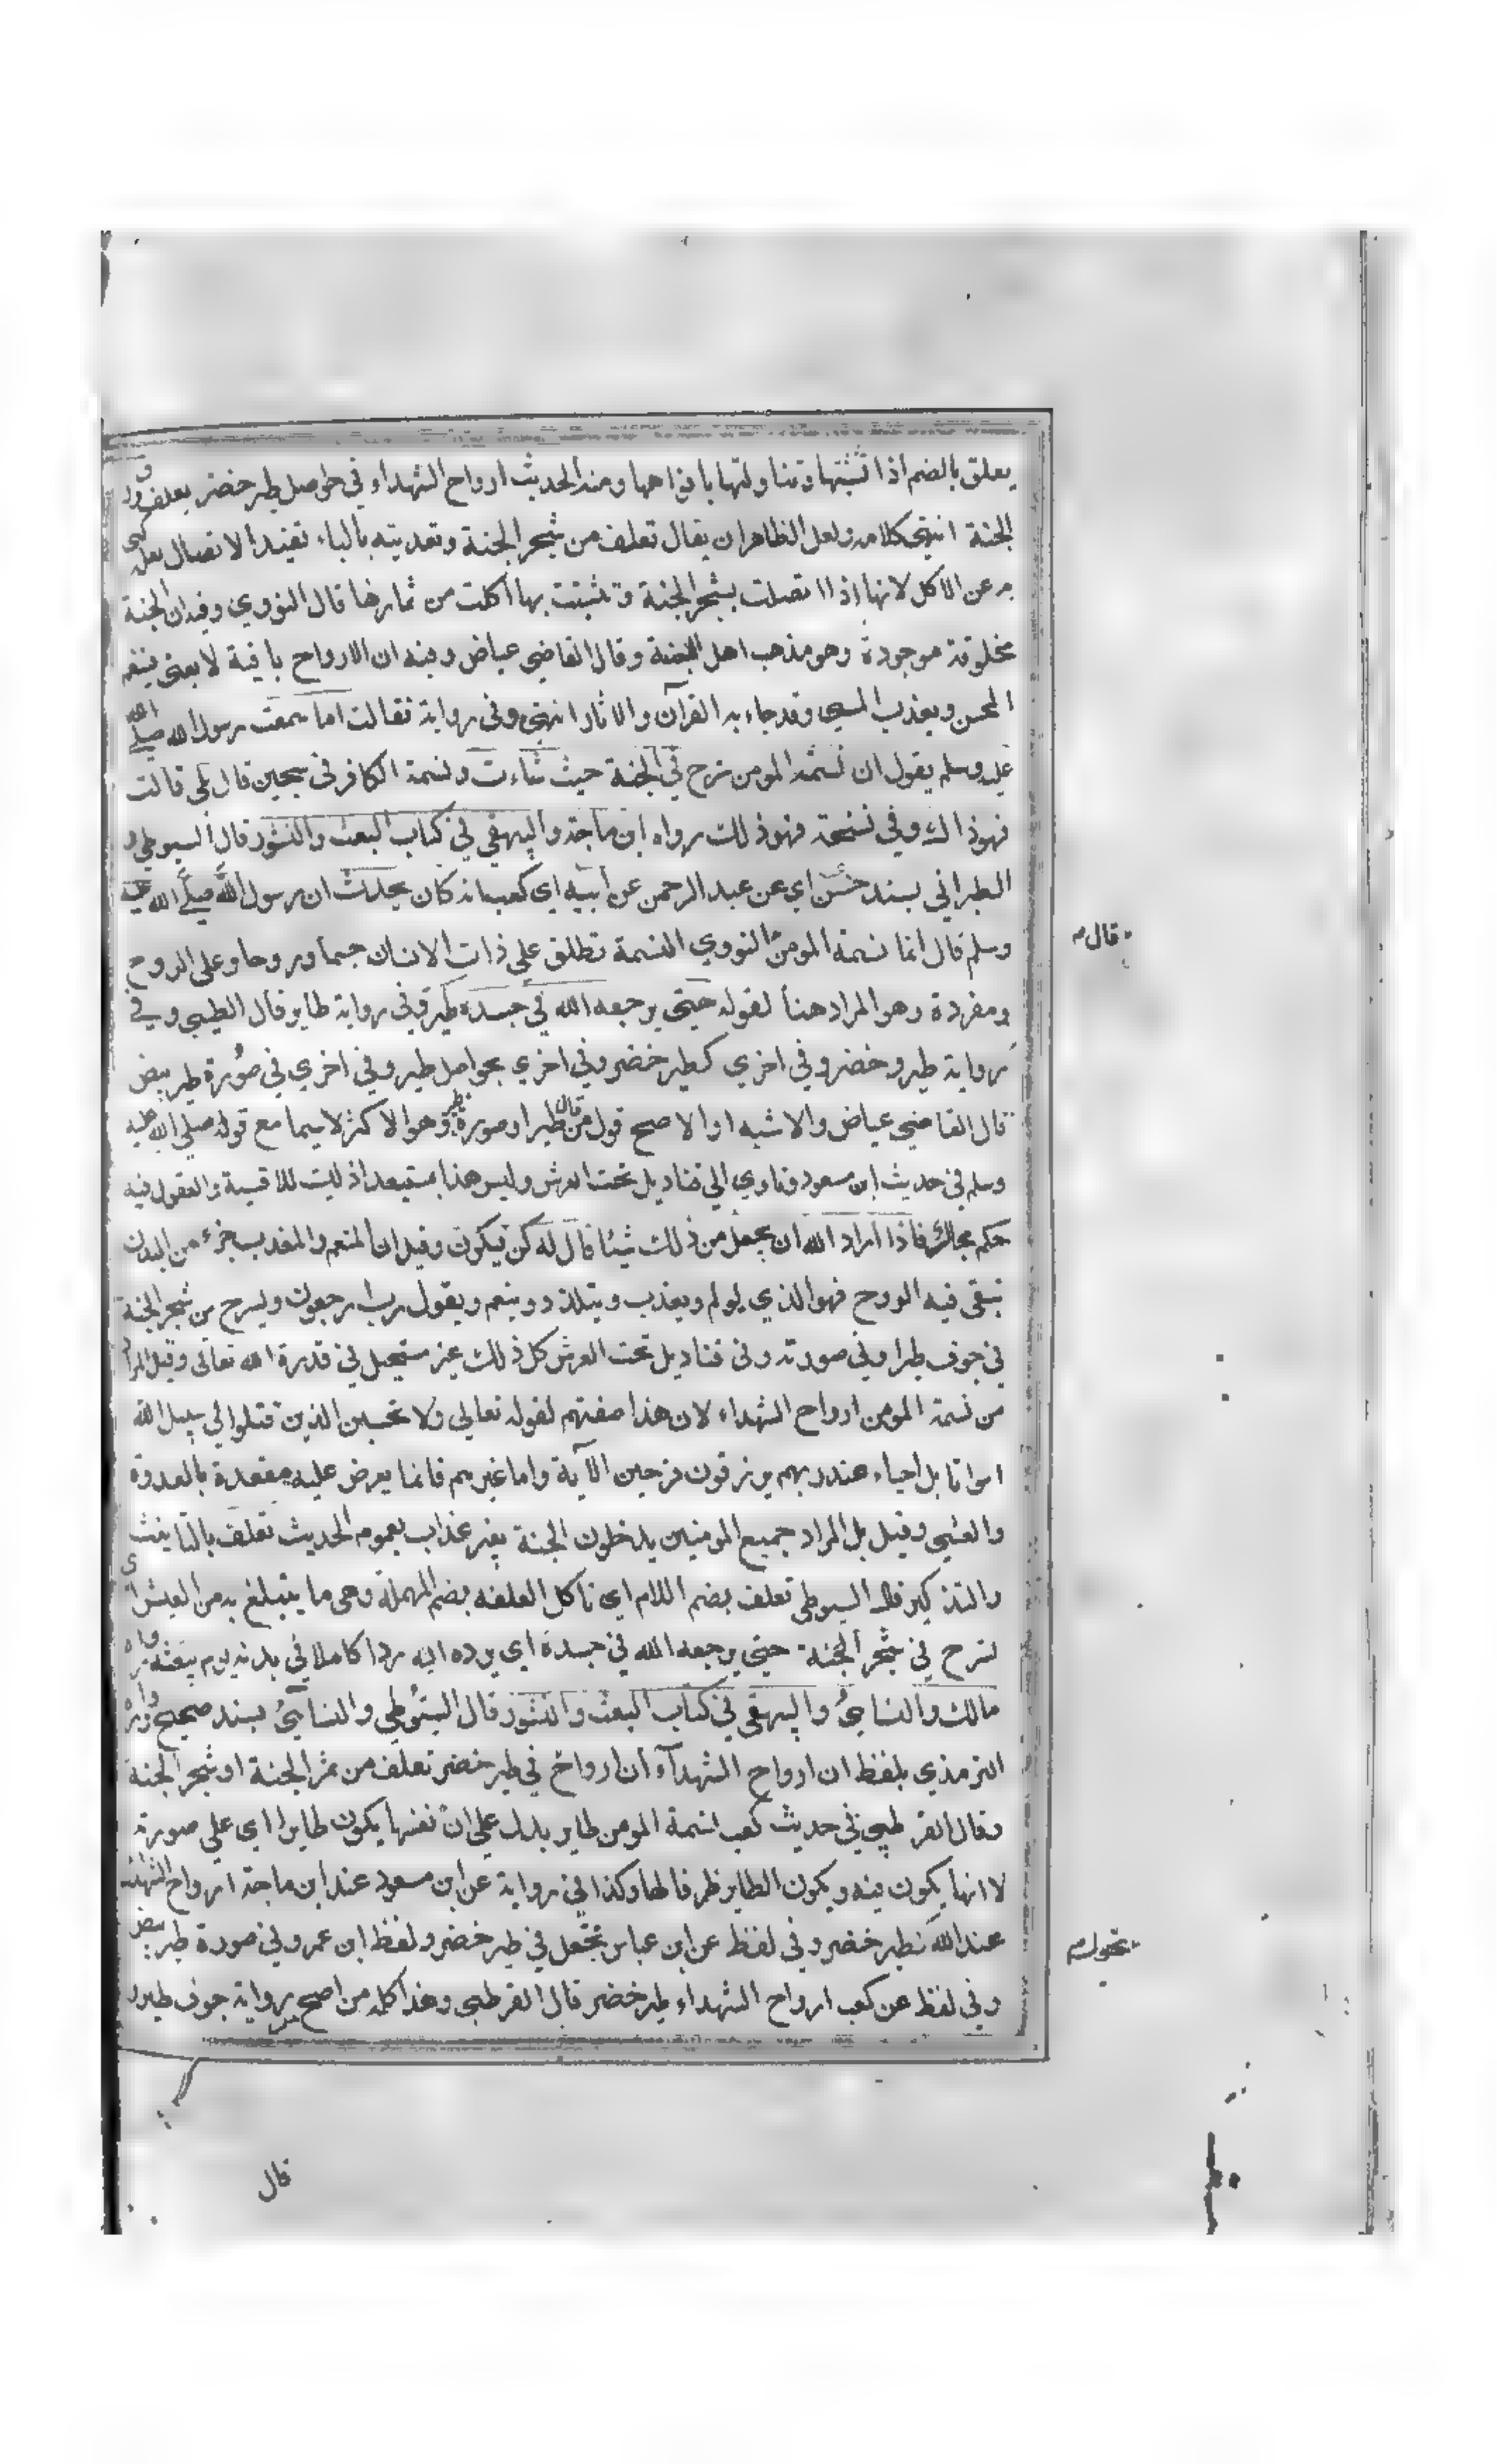 يعلق بالضم اذا تشبثها وتناولتها بافواهها ومنه الحديث ارواح الشهداء في حواصل طير خضر يعلف ورق
الجنة انتهى كلامه ولعل الظاهر ان يقال تعلف من شجر الجنة وتعديته بالباء تفيد الاتصال لعله كنى
به عن الاكل لانها اذا اتصلت بشجر الجنة وتشبثت بها اكلت من ثمارها قال النووي وفيه ان الجنة
مخلوقة موجودة وهو مذهب اهل السنة وقال القاضي عياض وفيه ان الارواح باقية لا يفنى فينعم
المحسن ويعذب المسيء وقد جاء به القرآن والاثار انتهى وفي رواية فقالت اما سمعت رسول الله صلى الله
عليه وسلم يقول ان نسمة المومن تسرح في الجنة حيث شاءت ونسمة الكافر في سجين قال بلى قالت
فهوذاك وفي نسخة فهو ذلك رواه ابن ماجة والبيهقي في كتاب البعث والنشور قال السيوطي و
الطبراني بسند حسن اي عن عبد الرحمن عن ابيه اي كعب انه كان يحدث ان رسول الله صلى الله عليه
وسلم قال انما نسمة المومن النووي النسمة تطلق على ذات الانسان جسما وروحا وعلى الروح
قال
ومفردة وهو المراد هنا لقوله حتى يرجعه الله في جسده طير وفي رواية طاير قال الطيبي وفي
رواية طير وخضر وفي اخري كطير خضر وفي اخري بحواصل طير وفي اخري في صورة طير بيض
قال القاضي عياض والاشبه او الاصح قول من قال طيرا وصورة طير وهو الاكثر لاسيما مع قوله صلى الله عليه
وسلم في حديث ابن مسعود وتاوي الي قناديل تحت العرش وليس هذا بمستبعد اذ ليت للاقسية والعقول فيه
حكم مجال فاذا اراد الله ان يجعل من ذلك شيئا قال له كن فيكون وقيل ان المنعم والمعذب جزء من البدن
تبقى فيه الروح فهو الذي يولم ويعذب ويتلذذ وينعم ويقول رب ارجعون ويسرح من شجر الجنة
في جوف طير او في صورته وفي قناديل تحت العرش كل ذلك غير مستحيل في قدرة الله تعالى وقيل المراد
من نسمة المومن ارواح الشهداء لان هذا صفتهم لقوله تعالى ولا تحسبن الذين قتلوا في سبيل الله
امواتا بل احياء عند ربهم يرزقون فرحين الآية واما غيرهم فانما يعرض عليه مقعده بالغدوة
والعشي وقيل بل المراد جميع المومنين يدخلون الجنة بغير عذاب بعموم الحديث تعلف بالتانيث
والتذكير قال السيوطي تعلف بضم اللام اي تاكل العلفه بضم المهملة وهي ما يتبلغ به من العيش اي
تسرح في شجر الجنة حتى يرجعه الله في جسده اي يرده اليه ردا كاملا في بدنه يوم يبعثه رواه
مالك والنسايئ والبيهقي في كتاب البعث والنشور قال السيوطي والنسايئ بسند صحيح ورواه
الترمذي بلفظ ان ارواح الشهدآء ان ارواح في طير خضر تعلف من ثمر الجنة او شجر الجنة
وقال القرطبي في حديث كعب نسمة المومن طاير يدل على ان نفسها يكون طايرا اي على صورته
لا انها يكون فيه ويكون الطاير ظرفا لها وكذا في رواية عن ابن مسعود عند ابن ماجة ارواح الشهداء
عند الله كطير خضر وفي لفظ عن ابن عباس تجعل في طير خضر ولفظ ابن عمرو في صورة طير بيض
تحول
وفي لفظ عن كعب ارواح الشهداء طير خضر قال القرطبي وهذا كله من اصح رواية جوف طير
قال